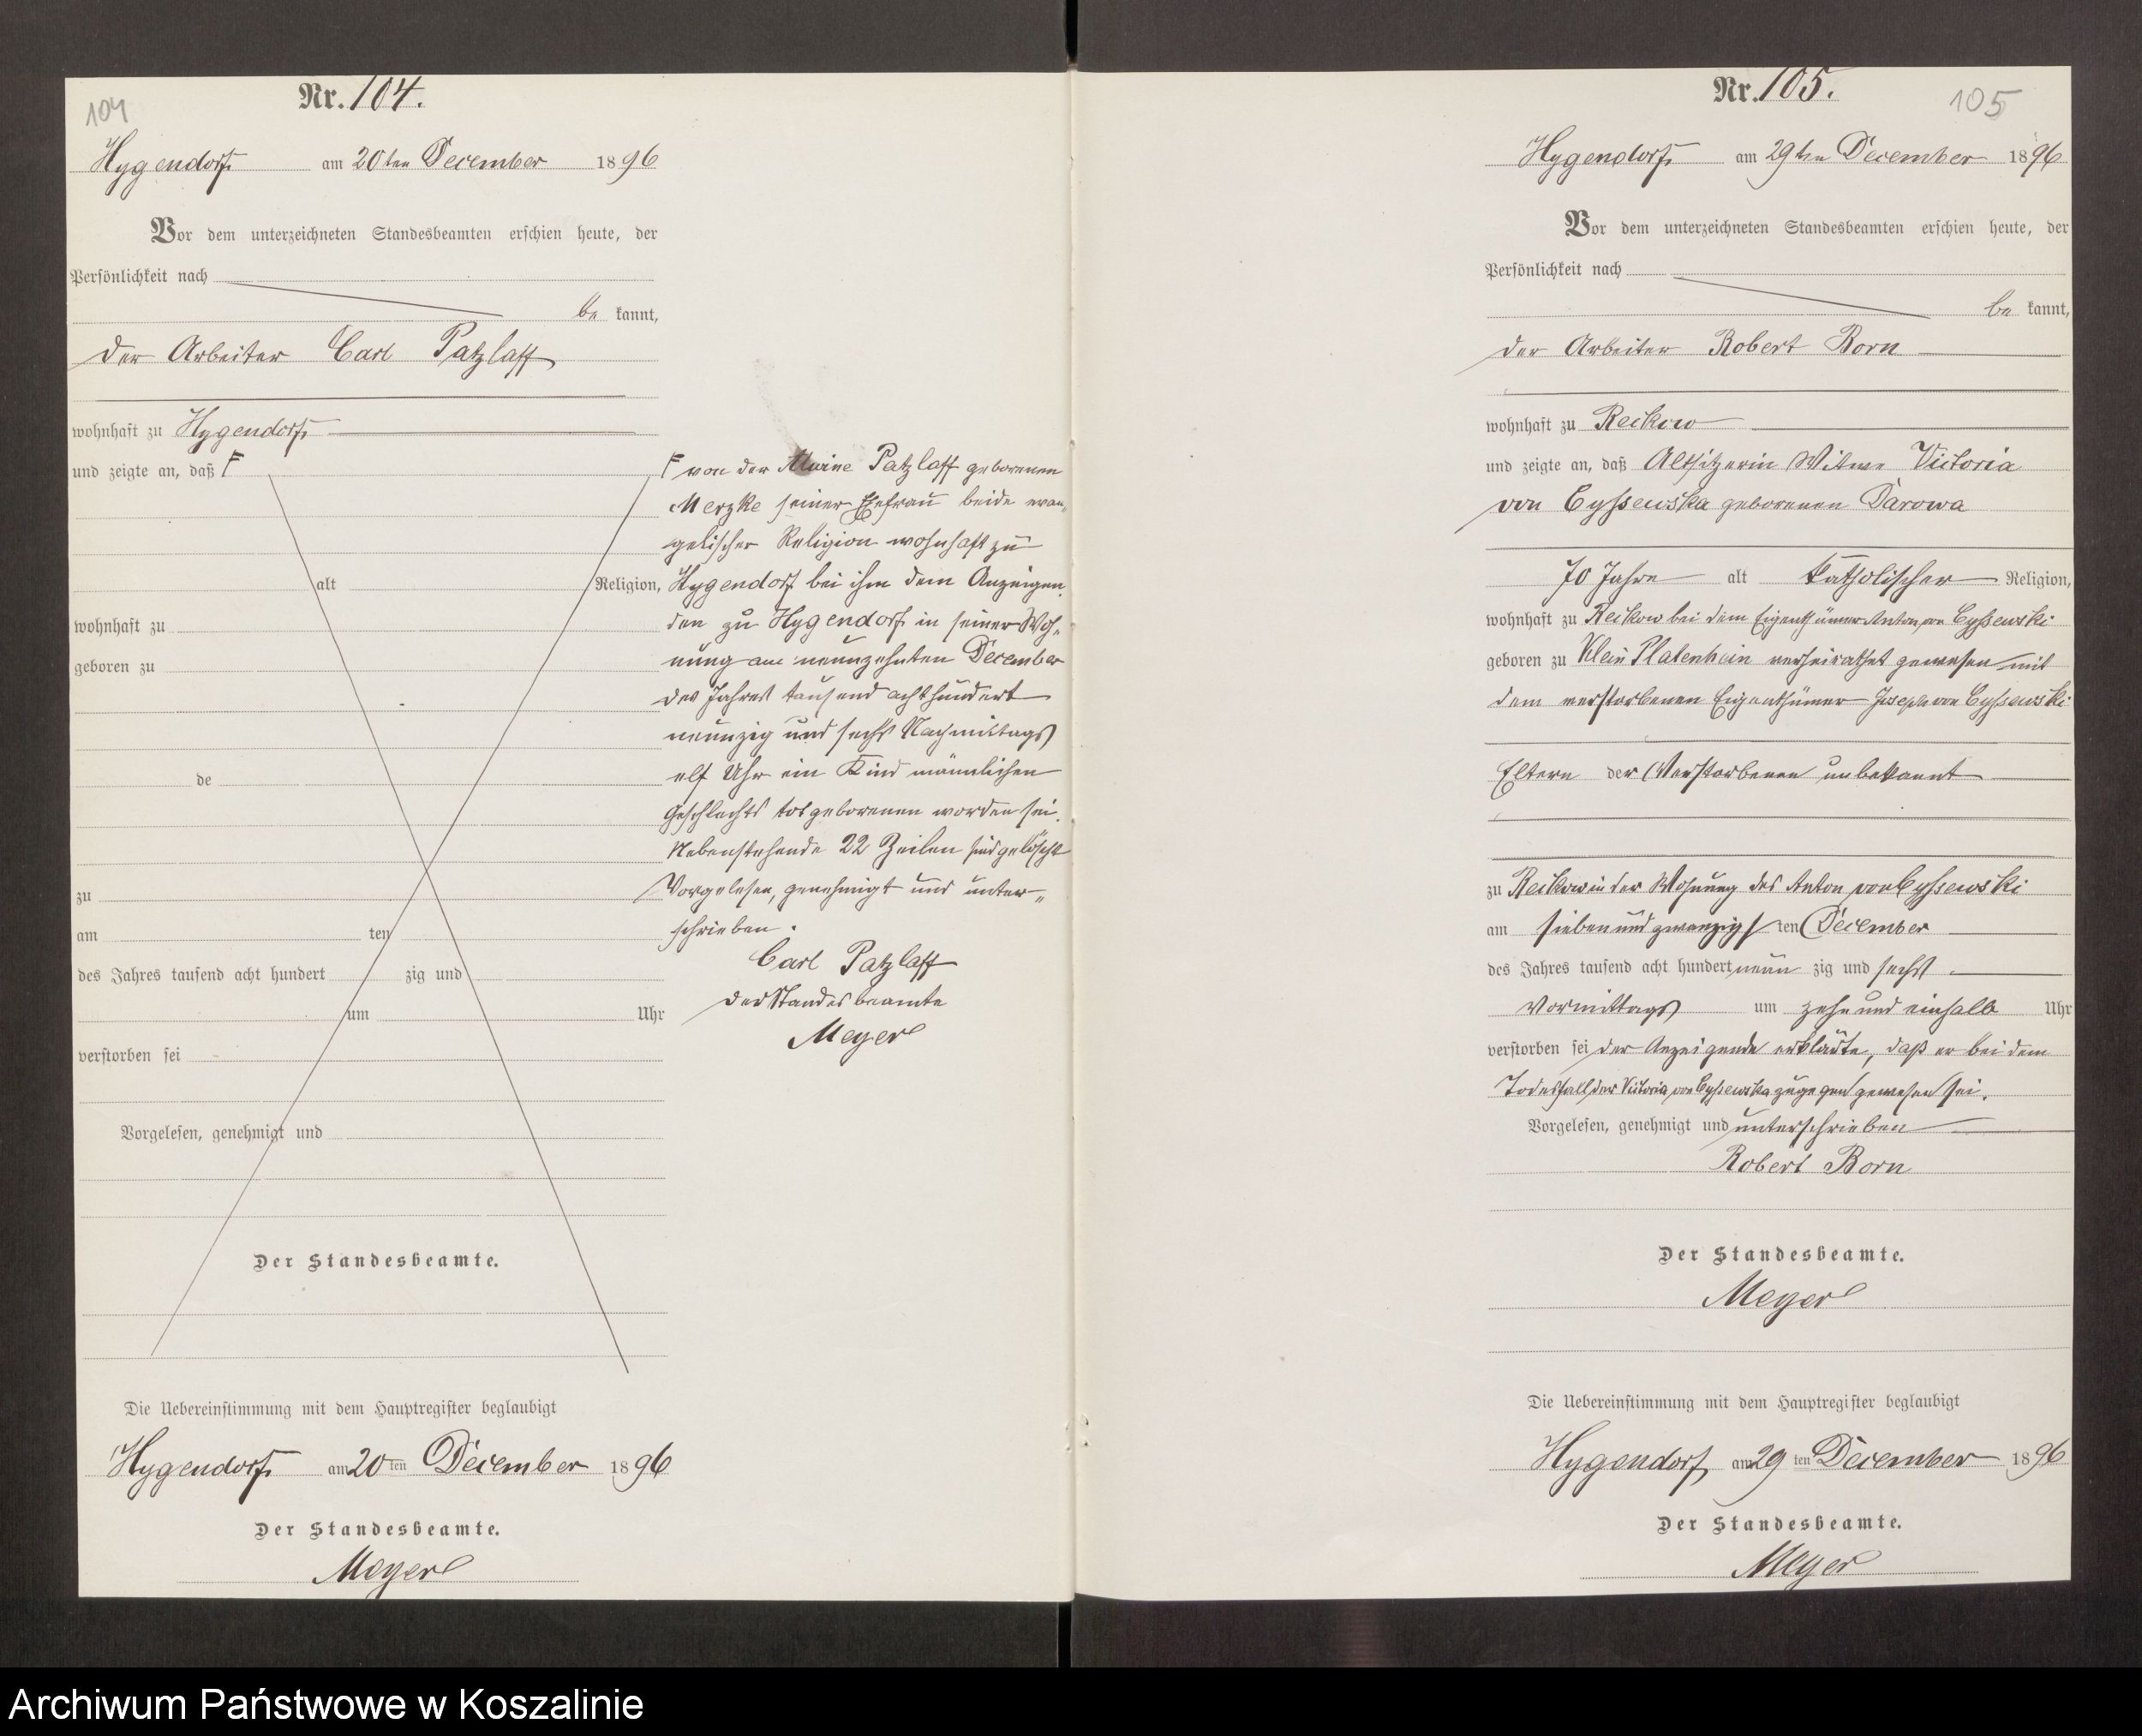 104
Nr. 104.
Hygendorf am 20ten December 1896
Vor dem unterzeichneten Standesbeamten erschien heute, der
Persönlichkeit nach
be kannt,
der Arbeiter Carl Patzlaff
wohnhaft zu Hygendorf
und zeigte an, daß F
alt Religion,
wohnhaft zu
geboren zu
de
zu
am ten
des Jahres tausend acht hundert zig und
um Uhr
verstorben sei
Vorgelesen, genehmigt und
Der Standesbeamte.
Die Uebereinstimmung mit dem Hauptregister beglaubigt
Hygendorf am 20 ten December 1896
Der Standesbeamte.
Meyer
F von der Patzlaff geborenen
Merzke seiner Ehefrau beide evan-
gelischer Religion wohnhaft zu
Hygendorf bei ihm dem Anzeigen-
den zu Hygendorf in seiner Woh-
nung am neunzehnten December
des Jahres tausend achthundert
neunzig und sechs Nachmittags
elf Uhr ein Kind männlichen
Geschlechts totgeborenen worden sei.
Nebenstehende 22 Zeilen sind gelöscht
Vorgelesen, genehmigt und unter-
schrieben.
Carl Patzlaff
der Standesbeamte
Meyer
Nr. 105.
105
Hygendorf am 29ten December 1896
Vor dem unterzeichneten Standesbeamten erschien heute, der
Persönlichkeit nach
be kannt,
der Arbeiter Robert Born
wohnhaft zu Reckow
und zeigte an, daß Altsitzerin Witwe Victoria
von Cyssewska geborenen Darowa
70 Jahre alt katholischer Religion,
wohnhaft zu Reckow bei dem Eigenthümer Anton von Cyssewski
geboren zu Klein Platenhein verheirathet gewesen mit
dem verstorbenen Eigenthümer Joseph von Cyssewski
Eltern der Verstorbenen unbekannt
zu Reckow in der Wohnung des Anton von Cyssewski
am sieben und zwanzigs ten December
des Jahres tausend acht hundert neun zig und sechs
Vormittags um zehn und einhalb Uhr
verstorben sei der Anzeigende erklärte, daß er bei dem
Todesfall der Victoria von Cyssewska zugegen gewesen sei.
Vorgelesen, genehmigt und unterschrieben
Robert Born
Der Standesbeamte.
Meyer
Die Uebereinstimmung mit dem Hauptregister beglaubigt
Hygendorf am 29 ten December 1896
Der Standesbeamte.
Meyer
Archiwum Państwowe w Koszalinie